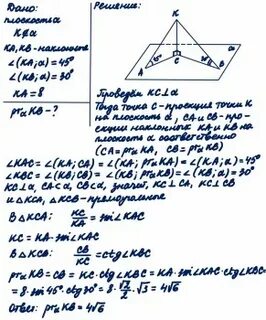 Дано:
плоскость α
K∉α
KA, KB - наклонные
∠(KA;α)=45°
∠(KB;α)=30°
KA=8
прαKB-?
Решение:
K
α
45°
30°
A
C
B
Проведём KC⊥α
Тогда точка C - проекция точки K
на плоскость α, CA и CB - про-
екции наклонных KA и KB на
плоскость α соответственно
(CA=прαKA, CB=прαKB)
∠KAC=∠(KA;CA)=∠(KA;прαKA)=∠(KA;α)=45°
∠KBC=∠(KB;CB)=∠(KB;прαKB)=∠(KB;α)=30°
KC⊥α, CA⊂α, CB⊂α, значит, KC⊥CA, KC⊥CB
и △KCA, △KCB - прямоугольные
В △KCA: KC/KA = sin∠KAC
KC=KA·sin∠KAC
В △KCB: CB/KC = ctg∠KBC
прαKB=CB=KC·ctg∠KBC=KA·sin∠KAC·ctg∠KBC=
=8·sin45°·ctg30°=8·√2/2·√3=4√6
Ответ: прαKB=4√6